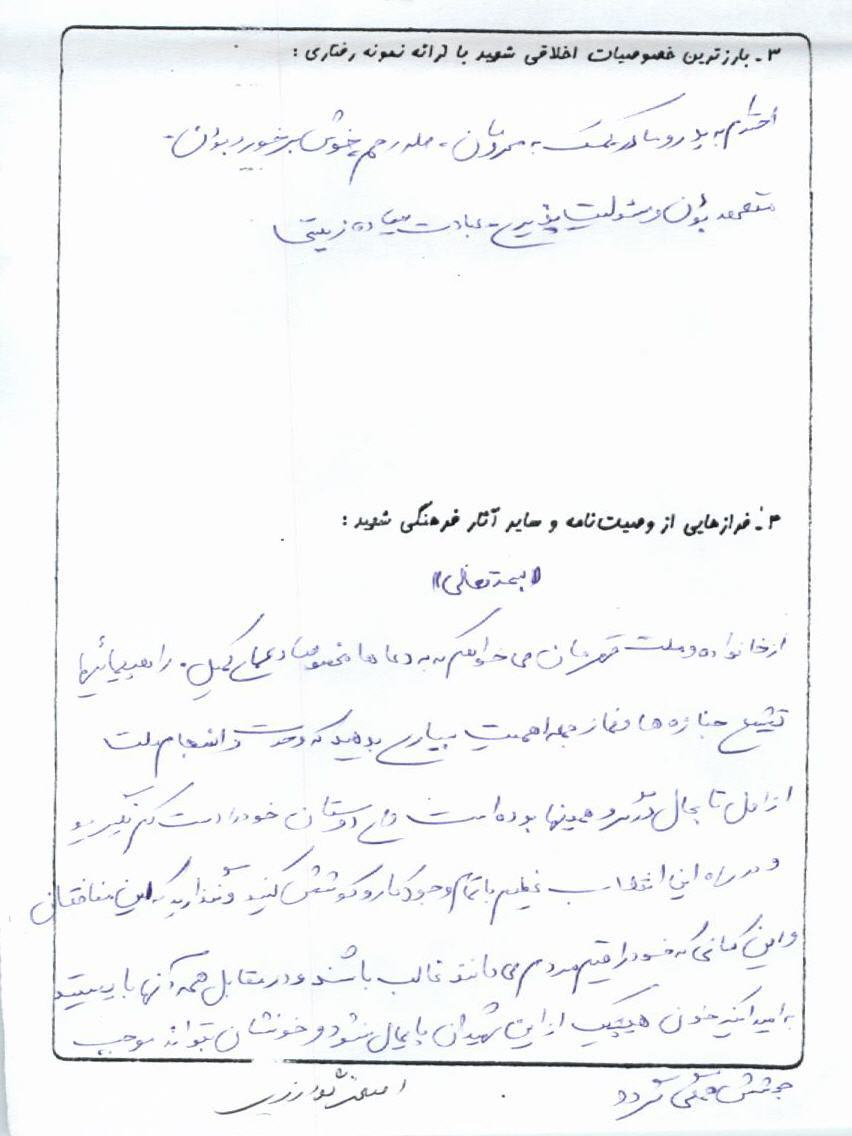 ۳ـ بارزترین خصوصیات اخلاقی شهید با ارائه نمونه رفتاری :
احترام به پدر و مادر کمک به محرومان - صله رحم - خوش برخورد بودن -
متعهد بودن و مسئولیت پذیری - عبادت - ساده زیستی
۴ـ فرازهایی از وصیت‌نامه و سایر آثار فرهنگی شهید :
«بسمه تعالی»
از خانواده و ملت قهرمان می خواهم که به دعا ها مخصوصا دعای کمیل . راهپیمائیها
تشیع جنازه ها و نماز جمعه اهمیت بسیاری بدهید که وحدت و انسجام ملت
از اول تا بحال در همینها بوده است و دوستان خود را دست کم نگیرید
و در راه این انقلاب عظیم با تمام وجود کار و کوشش کنید و نگذارید که این منافقان
و این کسانی که خود را قیم مردم می دانند غالب باشند و در مقابل همه آنها بایستید
به امید اینکه خون هیچیک از این شهیدان پایمال نشود و خونشان بتواند موجب
جوشش همگی گردد